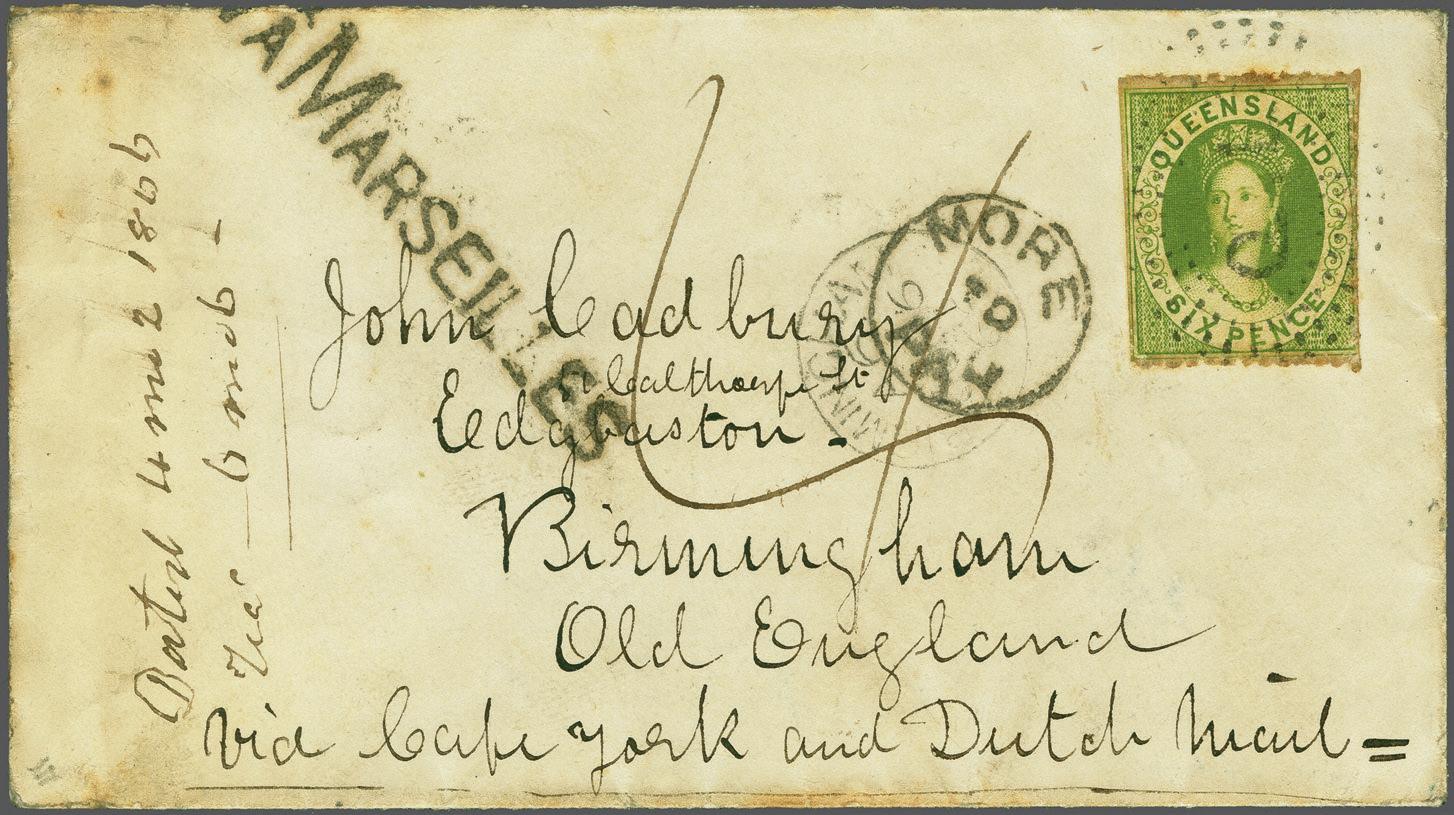 VIA MARSEILLES
QUEENSLAND
SIX PENCE
MORE
TO
PAY
John Cadbury
Calthorpe St
Edgbaston -
Birmingham
Old England
via Cape York and Dutch Mail =
4 mo 2 1866
6 mo 6